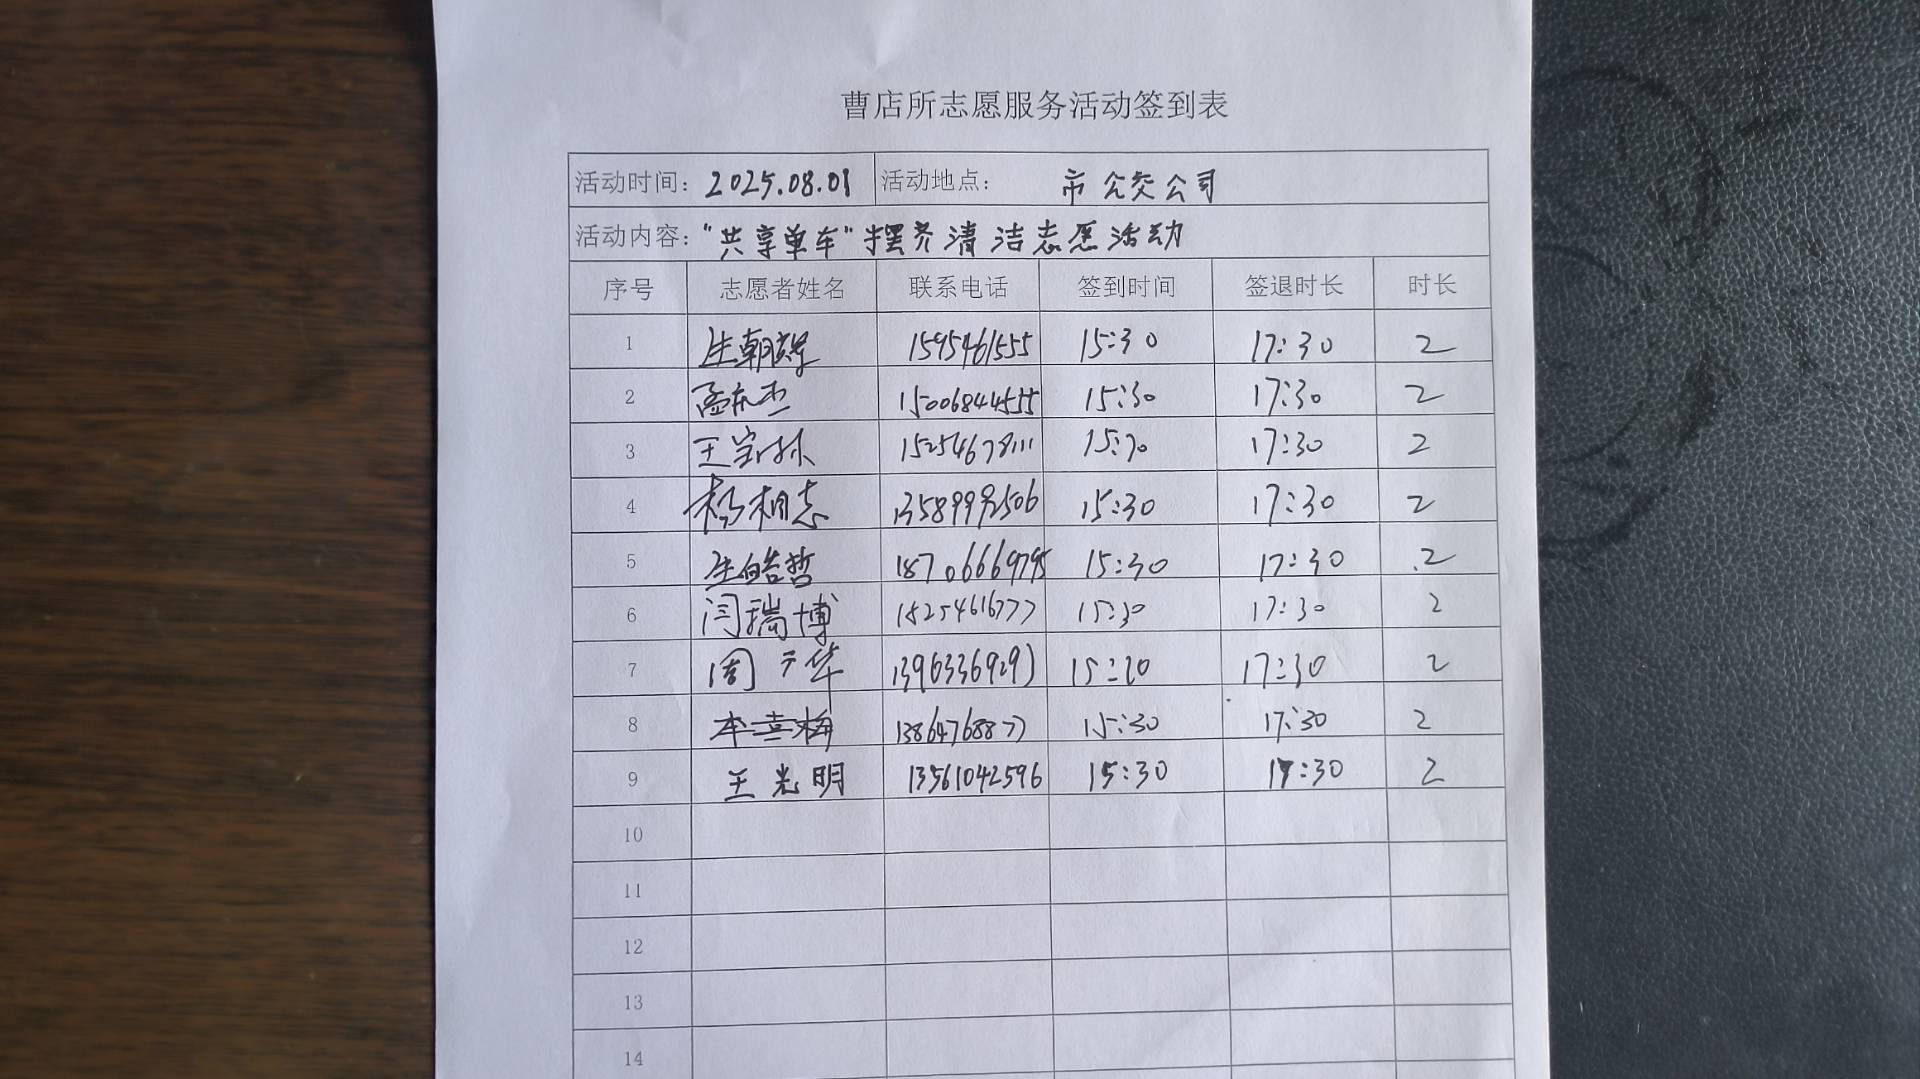 曹店所志愿服务活动签到表
活动时间: 2025.08.01 活动地点: 市公交公司
活动内容: "共享单车"摆齐清洁志愿活动
序号 志愿者姓名 联系电话 签到时间 签退时长 时长
1 生朝 1595461555 15:30 17:30 2
2 15006844555 15:30 17:30 2
3 王宝林 15254678111 15:30 17:30 2
4 杨相志 13589992506 15:30 17:30 2
5 生皓哲 18706669795 15:30 17:30 2
6 闫瑞博 18254616777 15:30 17:30 2
7 周于华 15:30 17:30 2
8 李喜梅 13864768877 15:30 17:30 2
9 王光明 13561042596 15:30 17:30 2
10
11
12
13
14